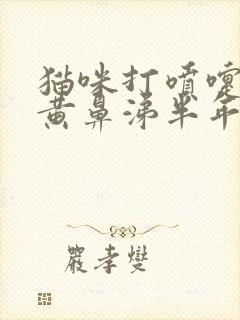 猫咪打喷嚏
黄鼻涕半年
严孝燮